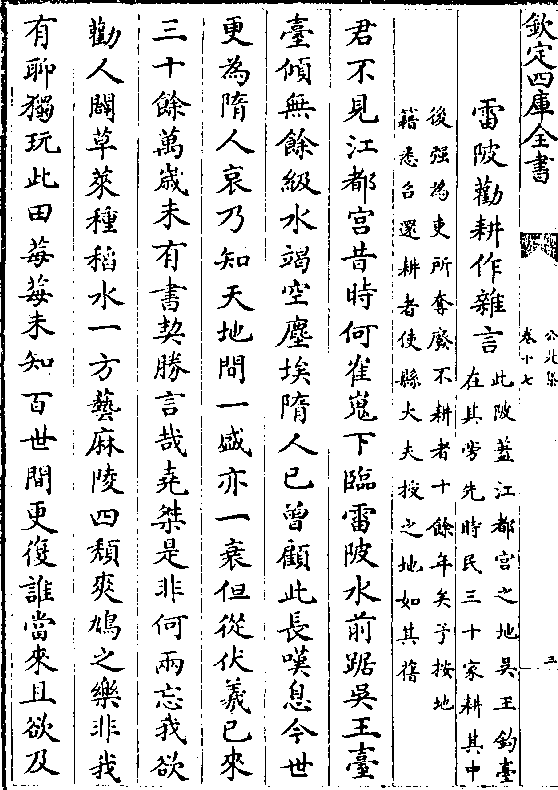 欽定四庫全書
公是集
卷十七
三
雷陂勸耕作雜言
此陂蓋江都宮之地吳王釣臺
在其旁先時民三十家耕其中
後强為吏所奪廢不耕者十餘年矣予按地
籍悉召還耕者使縣大夫授之地如其舊
君不見江都宮昔時何崔嵬下臨雷陂水前踞吳王臺
臺傾無餘級水竭空塵埃隋人已曾顧此長嘆息今世
更為隋人哀乃知天地間一盛亦一衰但從伏羲已來
三十餘萬歲未有書契勝言哉堯桀是非何兩忘我欲
勸人闢草萊種稻水一方藝麻陵四頹爽鳩之樂非我
有聊獨玩此田莓莓未知百世間更復誰當來且欲及